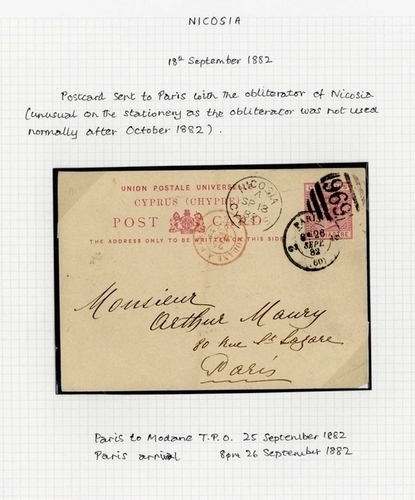 NICOSIA
18th September 1882
Postcard sent to Paris with the obliterator of Nicosia
(unusual on the stationery as the obliterator was not used
normally after October 1882).
UNION POSTALE UNIVERSELLE
CYPRUS (CHYPRE)
POST CARD
THE ADDRESS ONLY TO BE WRITTEN ON THIS SIDE
NICOSIA
A
SP 18
82
969
PARIS
26
SEPT
82
(60)
Monsieur
Arthur Maury
80 Rue St Lazare
Paris
Paris to Modane T.P.O. 25 September 1882
Paris arrival 8pm 26 September 1882